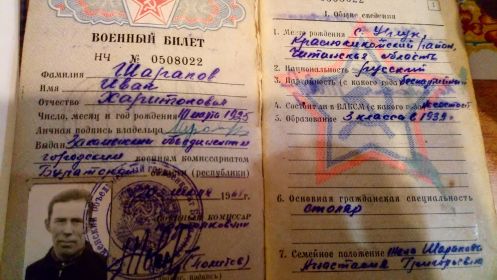 ВОЕННЫЙ БИЛЕТ
НЧ № 0508022
Фамилия Шарапов
Имя Иван
Отчество Харитонович
Число, месяц и год рождения марта 1925
Личная подпись владельца
Выдан Закаменским объединенным
городским военным комиссариатом
Бурятской (республики)
196
Военный комиссар
подполковник
I. Общие сведения
1. Место рождения с.
Красночикойский район,
Читинская область
2. Национальность русский
3. Партийность (с какого года) беспартийный
4. Состоит ли в ВЛКСМ (с какого года) не состоит
5. Образование 3 класса в 1939 г.
6. Основная гражданская специальность
столяр
7. Семейное положение жена Шарапова
Анастасия Григорьевна